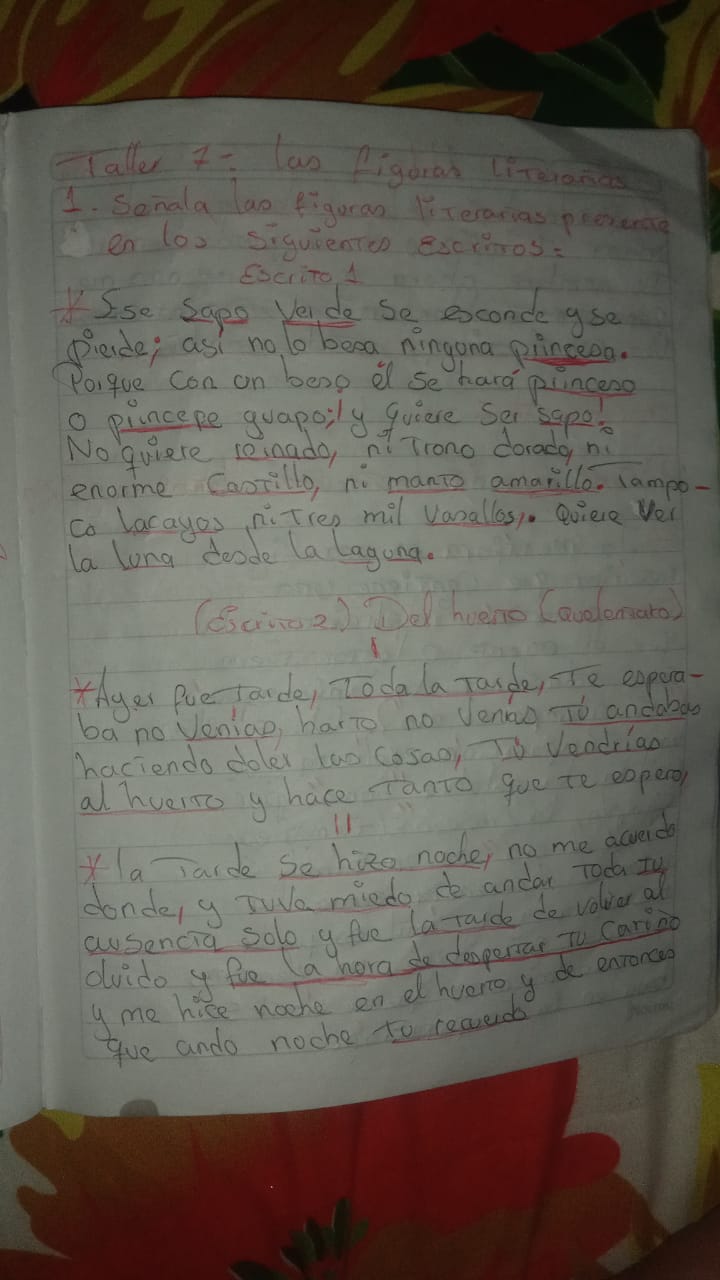 Taller 7= las figuras literarias
1. Señala las figuras literarias presente
en los siguientes escritos=
Escrito 1
* Ese Sapo Verde se esconde y se
pierde; así no lo besa ninguna princesa.
Porque con un beso él se hará princeso
o príncepe guapo; ¡y quiere ser sapo!
No quiere reinado, ni trono dorado, ni
enorme Castillo, ni manto amarillo. Tampo-
co lacayos ni tres mil vasallos,. Quiere ver
la luna desde la laguna.
(Escrito 2) Del huerto (avolemato)
I
*Ayer fue tarde, Toda la tarde, Te espera-
ba no venías, harto no venías Tú andabas
haciendo doler las cosas, Tú vendrías
al huerto y hace tanto que te espero,
II
* la tarde se hizo noche, no me acuerdo
donde, y tuve miedo de andar toda tu
ausencia solo y fue la tarde de volver al
olvido y fue la hora de despertar tu cariño
y me hice noche en el huerto y de entonces
que ando noche tu recuerdo